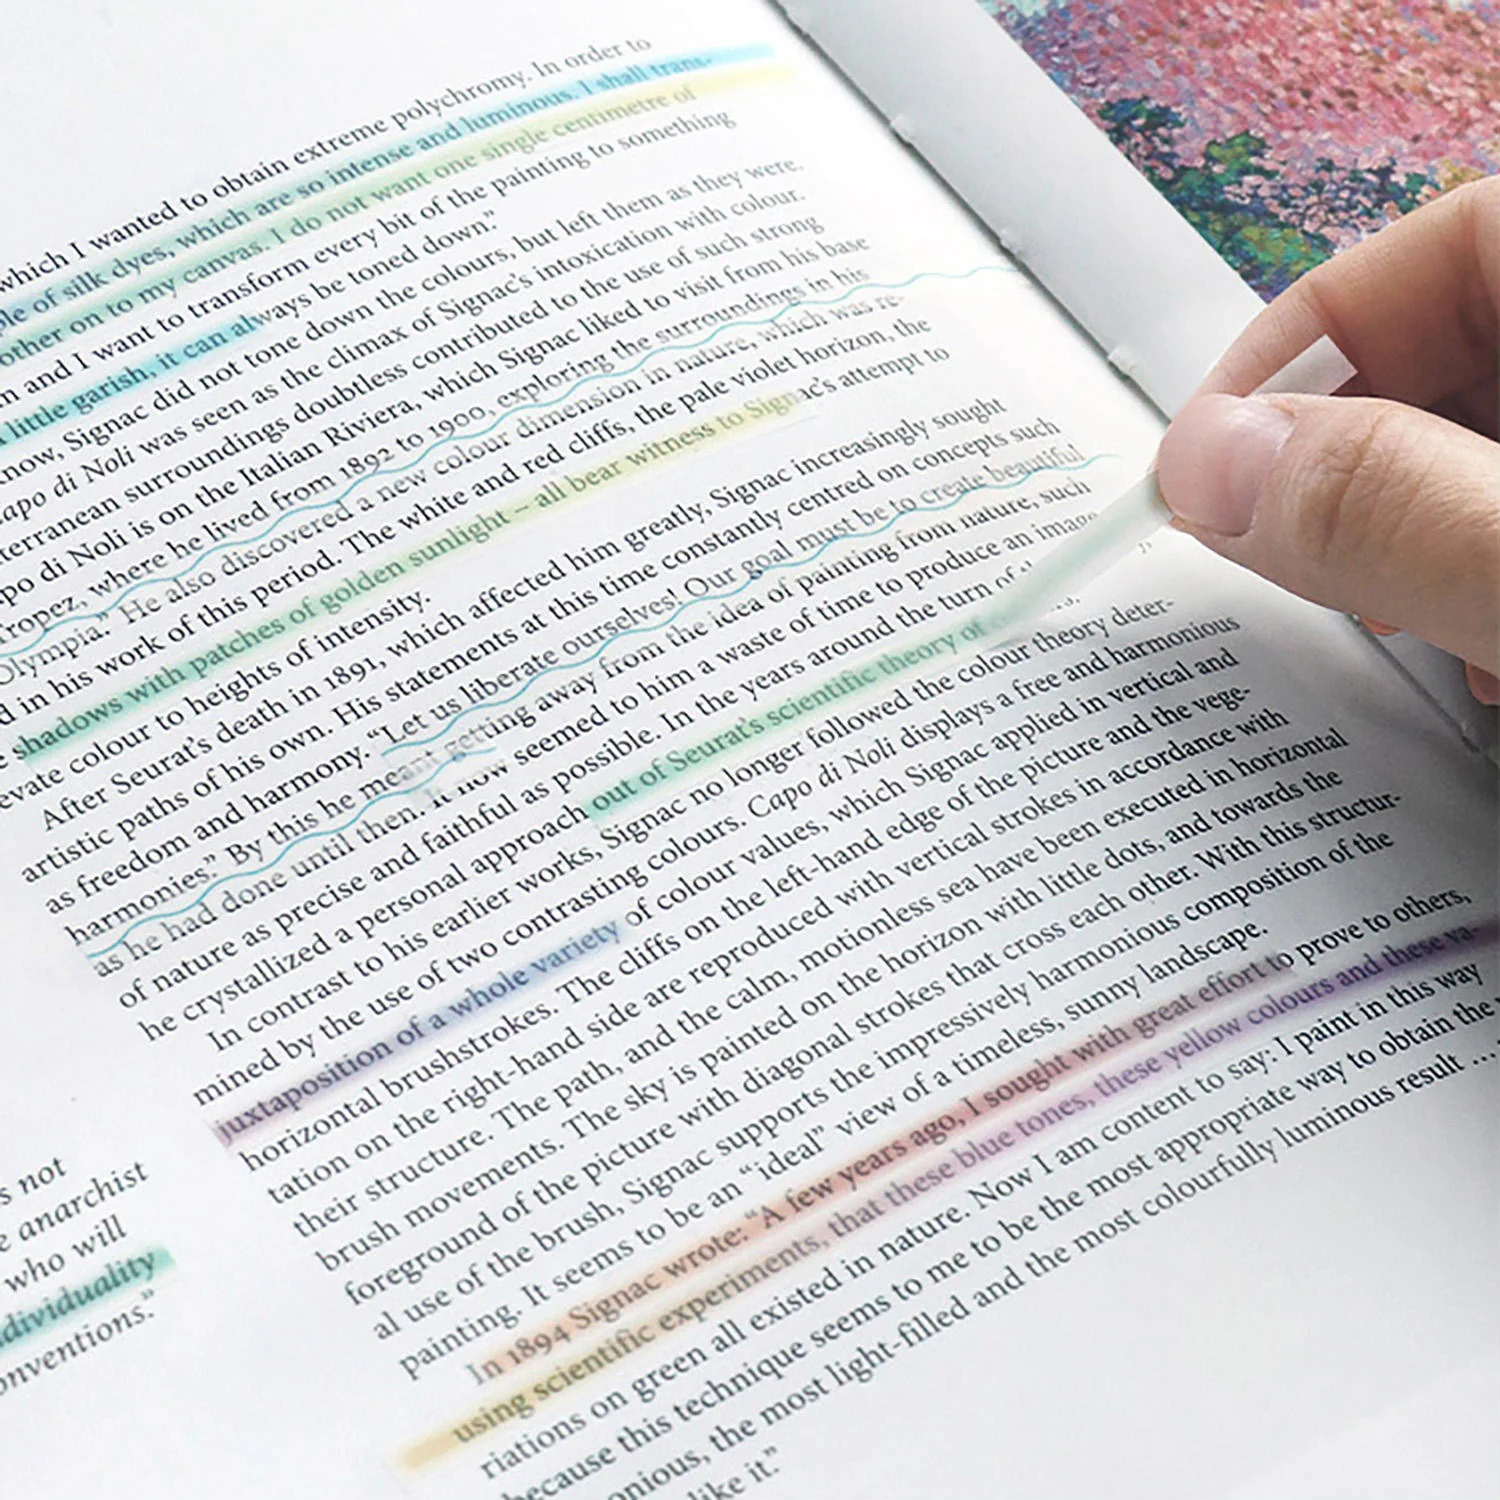 which I wanted to obtain extreme polychromy. In order to
of silk dyes, which are so intense and luminous. I shall trans-
other on to my canvas. I do not want one single centimetre of
and I want to transform every bit of the painting to something
little garish, it can always be toned down.”
know, Signac did not tone down the colours, but left them as they were.
Capo di Noli was seen as the climax of Signac’s intoxication with colour.
surroundings doubtless contributed to the use of such strong
di Noli is on the Italian Riviera, which Signac liked to visit from his base
where he lived from 1892 to 1900, exploring the surroundings in his
Olympia.” He also discovered a new colour dimension in nature, which was re-
in his work of this period. The white and red cliffs, the pale violet horizon, the
shadows with patches of golden sunlight – all bear witness to Signac’s attempt to
colour to heights of intensity.
After Seurat’s death in 1891, which affected him greatly, Signac increasingly sought
artistic paths of his own. His statements at this time constantly centred on concepts such
as freedom and harmony. “Let us liberate ourselves! Our goal must be to create beautiful
harmonies.” By this he meant getting away from the idea of painting from nature, such
as he had done until then. It now seemed to him a waste of time to produce an image
of nature as precise and faithful as possible. In the years around the turn of
he crystallized a personal approach out of Seurat’s scientific theory of
In contrast to his earlier works, Signac no longer followed the colour theory deter-
mined by the use of two contrasting colours. Capo di Noli displays a free and harmonious
juxtaposition of a whole variety of colour values, which Signac applied in vertical and
horizontal brushstrokes. The cliffs on the left-hand edge of the picture and the vege-
tation on the right-hand side are reproduced with vertical strokes in accordance with
their structure. The path, and the calm, motionless sea have been executed in horizontal
brush movements. The sky is painted on the horizon with little dots, and towards the
foreground of the picture with diagonal strokes that cross each other. With this structur-
al use of the brush, Signac supports the impressively harmonious composition of the
painting. It seems to be an “ideal” view of a timeless, sunny landscape.
In 1894 Signac wrote: “A few years ago, I sought with great effort to prove to others,
using scientific experiments, that these blue tones, these yellow colours and these va-
riations on green all existed in nature. Now I am content to say: I paint in this way
because this technique seems to me to be the most appropriate way to obtain the
the most light-filled and the most colourfully luminous result …
like it.”
not
anarchist
who will